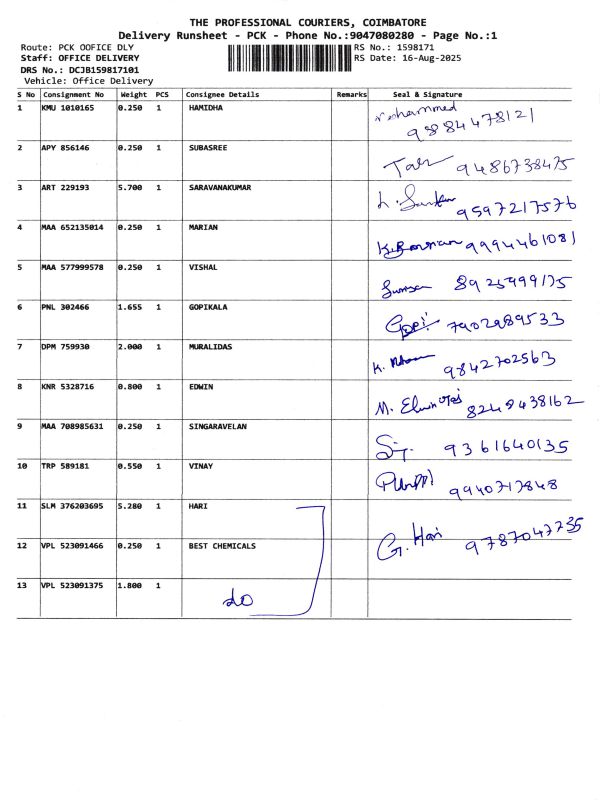 THE PROFESSIONAL COURIERS, COIMBATORE
Delivery Runsheet - PCK - Phone No.:9047080280 - Page No.:1
Route: PCK OOFICE DLY RS No.: 1598171
Staff: OFFICE DELIVERY RS Date: 16-Aug-2025
DRS No.: DCJB159817101
Vehicle: Office Delivery
S No Consignment No Weight PCS Consignee Details Remarks Seal & Signature
1 KMU 1010165 0.250 1 HAMIDHA
9884478121
2 APY 856146 0.250 1 SUBASREE
9486738475
3 ART 229193 5.700 1 SARAVANAKUMAR
9597217576
4 MAA 652135014 0.250 1 MARIAN
9994461081
5 MAA 577999578 0.250 1 VISHAL
8925999175
6 PNL 302466 1.655 1 GOPIKALA
Gopi 7902989533
7 DPM 759930 2.000 1 MURALIDAS
K. 9842702563
8 KNR 5328716 0.800 1 EDWIN
M. Edwin 8248438162
9 MAA 708985631 0.250 1 SINGARAVELAN
9361640135
10 TRP 589181 0.550 1 VINAY
9940717848
11 SLM 376203695 5.280 1 HARI
G. Hari 9787047735
12 VPL 523091466 0.250 1 BEST CHEMICALS
13 VPL 523091375 1.800 1
do